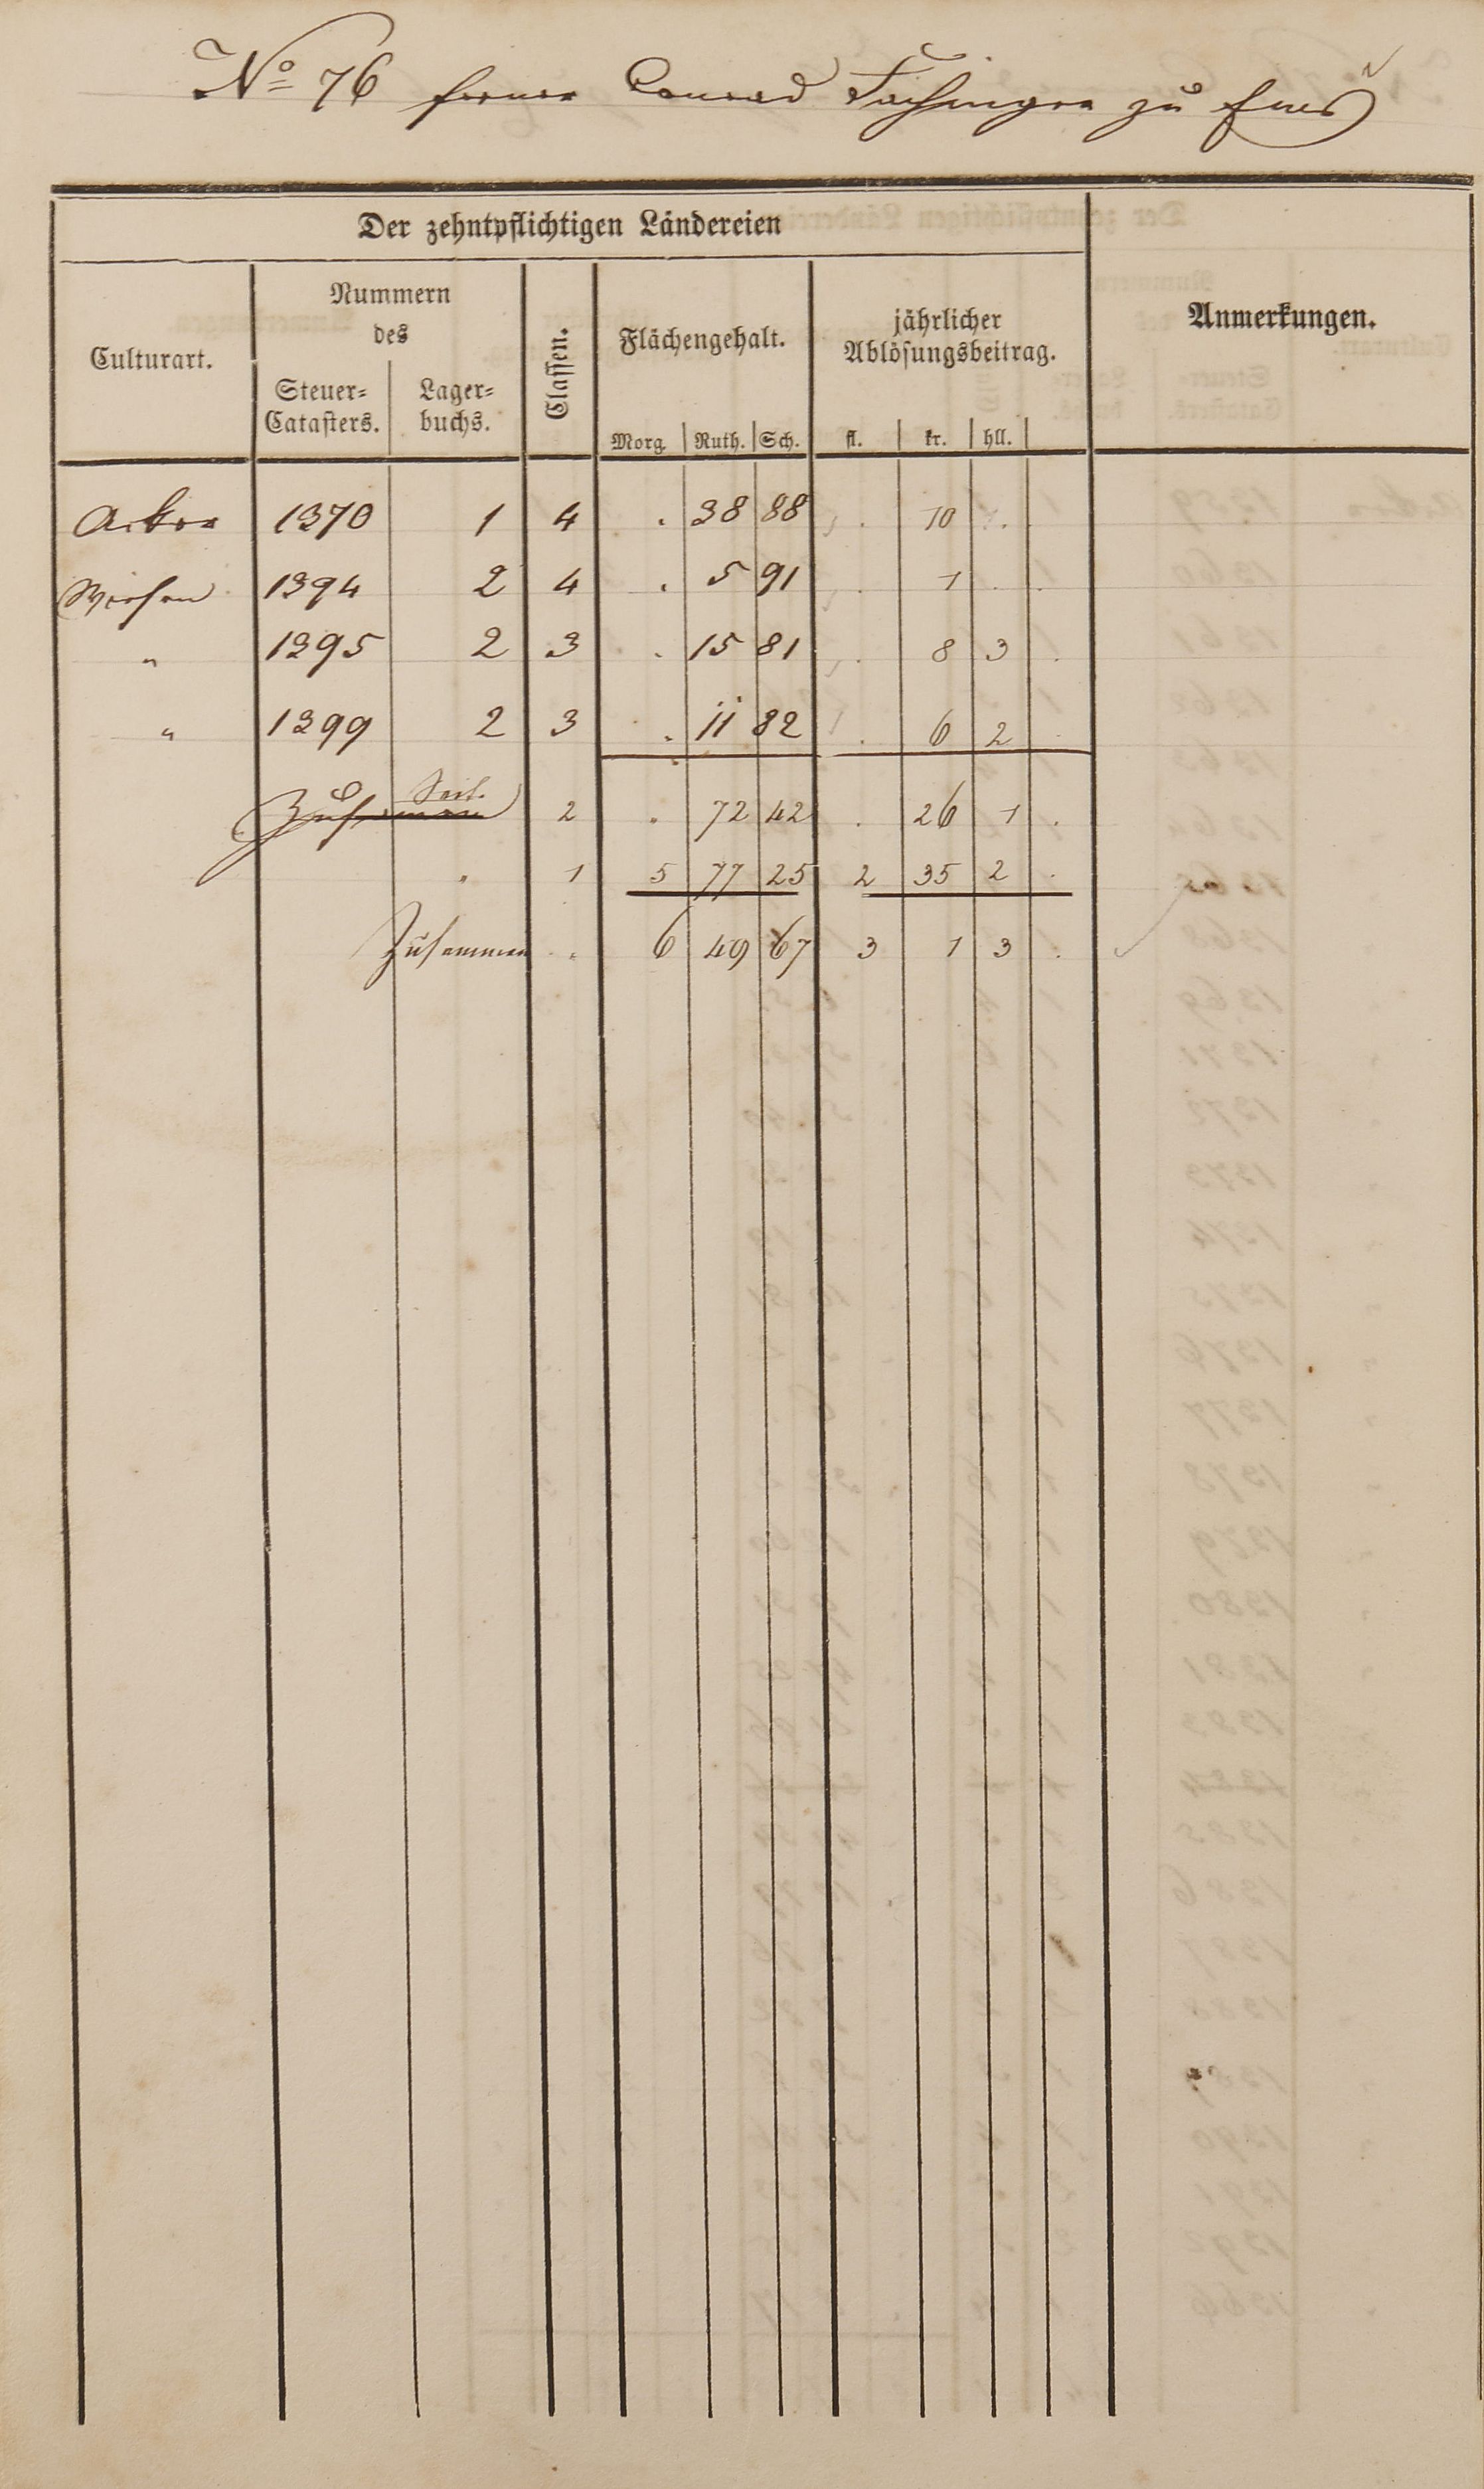 No 76 ferner Conrad Fachinger zu Ems
Der zehntpflichtigen Ländereien
Culturart.
Nummern
des
Steuer=
Catasters.
Lager=
buchs.
Classen.
Flächengehalt.
Morg. Ruth. Sch.
jährlicher
Ablösungsbeitrag.
fl. kr. hll.
Anmerkungen.
Acker 1370 1 4 . 38 88 . 10 .
Wiesen 1394 2 4 . 5 91 . 1 . .
" 1395 2 3 . 15 81 . 8 3 .
" 1399 2 3 . 11 82 . 6 2 .
Seit.
Zusammen 2 . 72 42 . 26 1 .
" 1 5 77 25 2 35 2 .
Zusammen . . 6 49 67 3 1 3 .